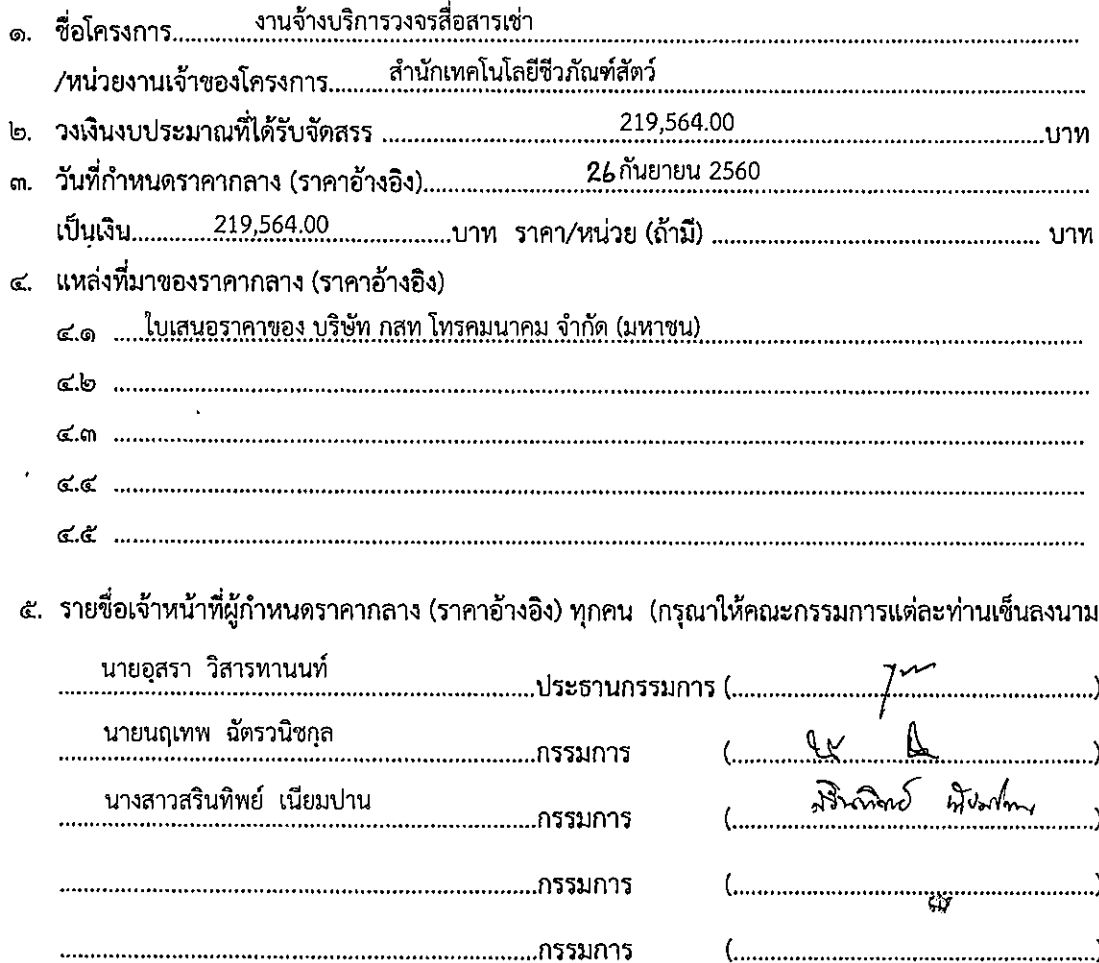 ๑. ชื่อโครงการ.....งานจ้างบริการวงจรสื่อสารเช่า.....
/หน่วยงานเจ้าของโครงการ.....สำนักเทคโนโลยีชีวภัณฑ์สัตว์.....
๒. วงเงินงบประมาณที่ได้รับจัดสรร .....219,564.00.....บาท
๓. วันที่กำหนดราคากลาง (ราคาอ้างอิง).....26 กันยายน 2560.....
เป็นเงิน.....219,564.00.....บาท ราคา/หน่วย (ถ้ามี) ..... บาท
๔. แหล่งที่มาของราคากลาง (ราคาอ้างอิง)
๔.๑ .....ใบเสนอราคาของ บริษัท กสท โทรคมนาคม จำกัด (มหาชน).....
๔.๒ .....
๔.๓ .....
๔.๔ .....
๔.๕ .....
๕. รายชื่อเจ้าหน้าที่ผู้กำหนดราคากลาง (ราคาอ้างอิง) ทุกคน (กรุณาให้คณะกรรมการแต่ละท่านเซ็นลงนาม
นายอุสรา วิสารทานนท์.....ประธานกรรมการ (.....)
นายนฤเทพ ฉัตรวนิชกุล.....กรรมการ (.....)
นางสาวสรินทิพย์ เนียมปาน.....กรรมการ (สรินทิพย์ เนียมปาน)
.....กรรมการ (.....)
.....กรรมการ (.....)